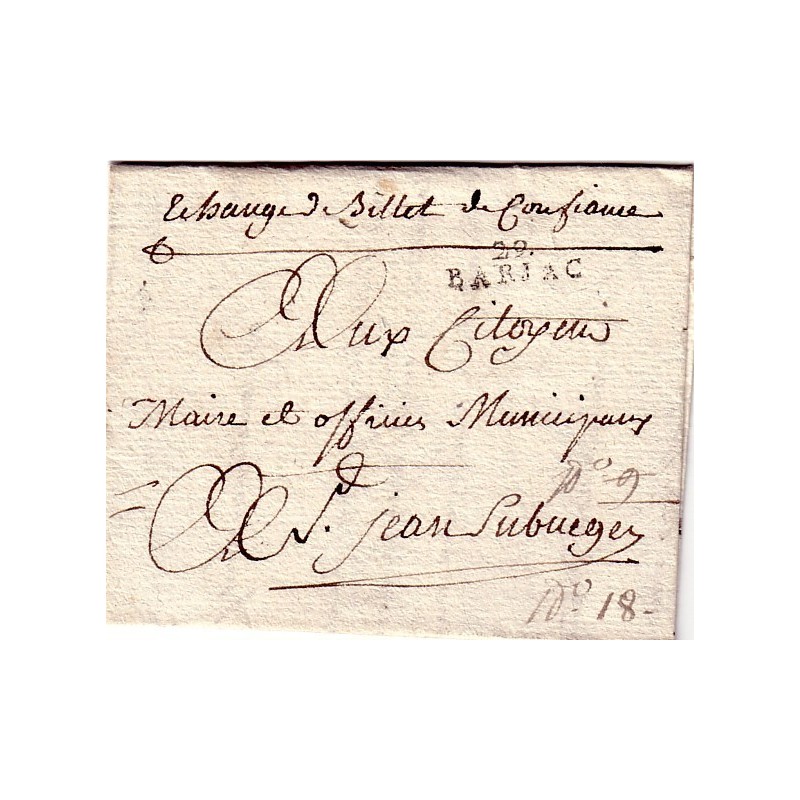 Echange de Billet de Confiance
29.
BARJAC
Aux Citoyens
Maire et officiers Municipaux
No 9
A St. jean
No 18